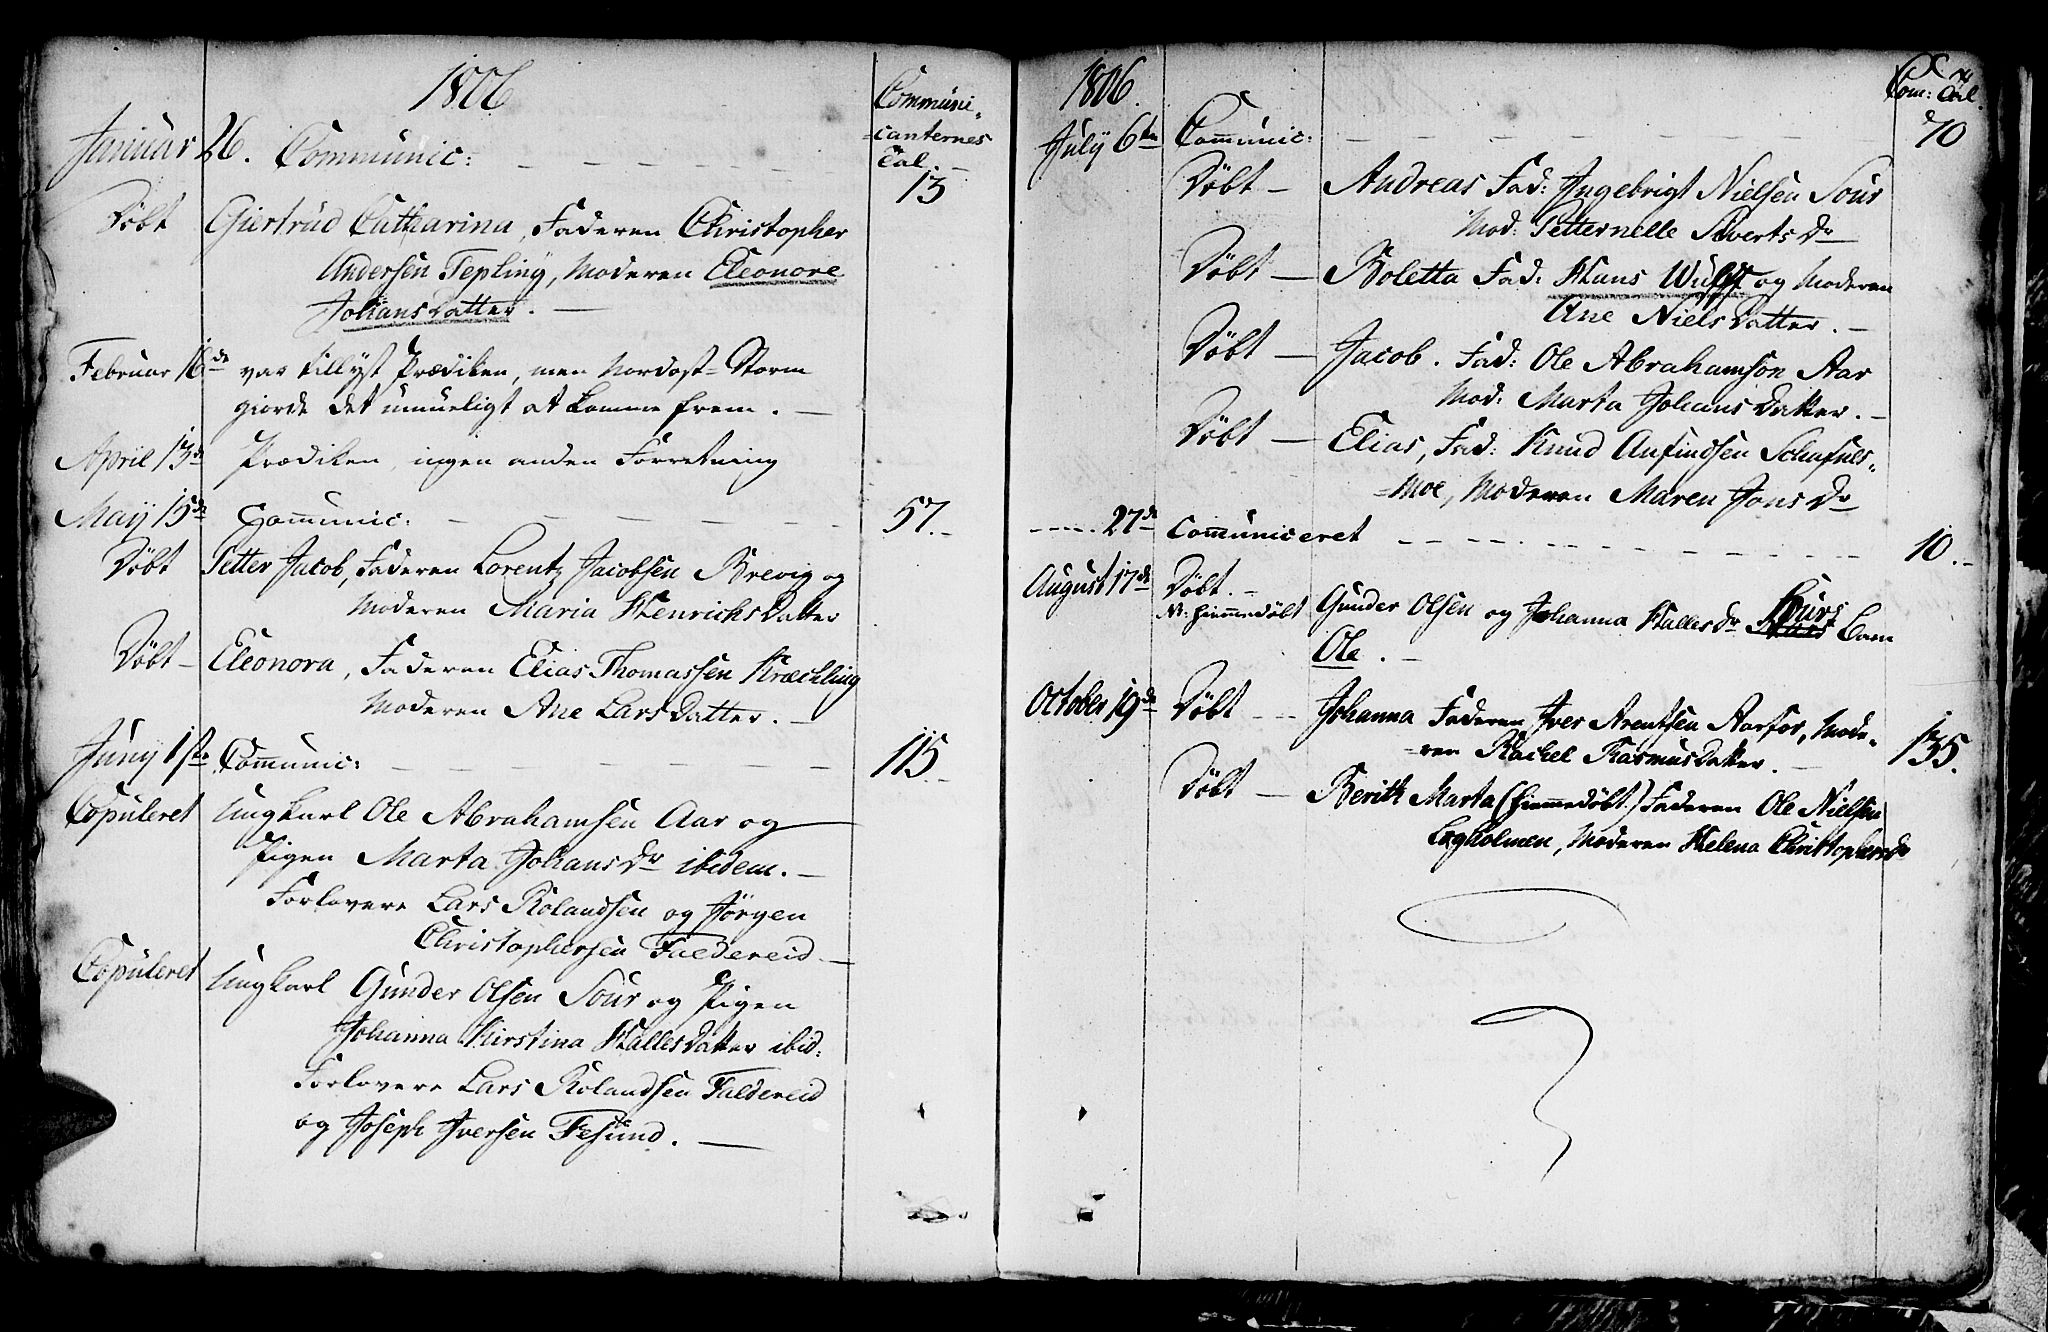 1806
Communi-
=canternes
Tal.
Januar 26. Communic: 13
Døbt Giertrud Catharina, Faderen Christopher
Andersen Tepling, Moderen Eleonore
Johansdatter. —
Februar 16de var tillyst Prædiken, men Nordost-Storm
giorde det umueligt at komme frem. —
April 13de Prædiken, ingen anden Forretning
Maij 15de Communic: 57. —
Døbt Petter Jacob, Faderen Lorentz Jacobsen Brevig og
Moderen Maria Henrichsdatter
Døbt — Eleonora, Faderen Elias Thomassen Kræchling
Moderen Ane Larsdatter. —
Junij 1ste Communic: 115. —
Copuleret Ungkarl Ole Abrahamsen Aar og
Pigen Marta Johansdr ibidem. —
Forlovere Lars Rolandsen og Jørgen
Christophersen Faldereid —
Copuleret Ungkarl Gunder Olsen Sour og Pigen
Johanna Kirstina Hallesdatter ibid:
Forlovere Lars Rolandsen Faldereid
og Joseph Iversen Fesund. —
1806.
Com: Tal.
July 6te Communic: 70
Døbt — Andreas Fad: Ingebrigt Nielsen Sour
Mod: Petternelle Siverts Dr
Døbt — Boletta Fad: Hans og Moderen
Ane Nielsdatter. —
Døbt — Jacob. Fad: Ole Abrahamson Aar
Mod: Marta Johansdatter. —
Døbt — Elias, Fad: Knud Anfindsen Schafnes-
=moe, Moderen Maren Jons Dr
27de Communiceret 10. —
August 17de Døbt. —
N: hiemmedøbt Gunder Olsen og Johanna Halles Dr Sours Barn
Ole. —
October 19de Døbt — Johanna Faderen Iver Arentsen Aarfor, Mode-
=ren Rachel Rasmusdatter. — 135.
Døbt — Berith Marta (hiemmedøbt) Faderen Ole Nielsen
Legholmen, Moderen Helena Christophersdr